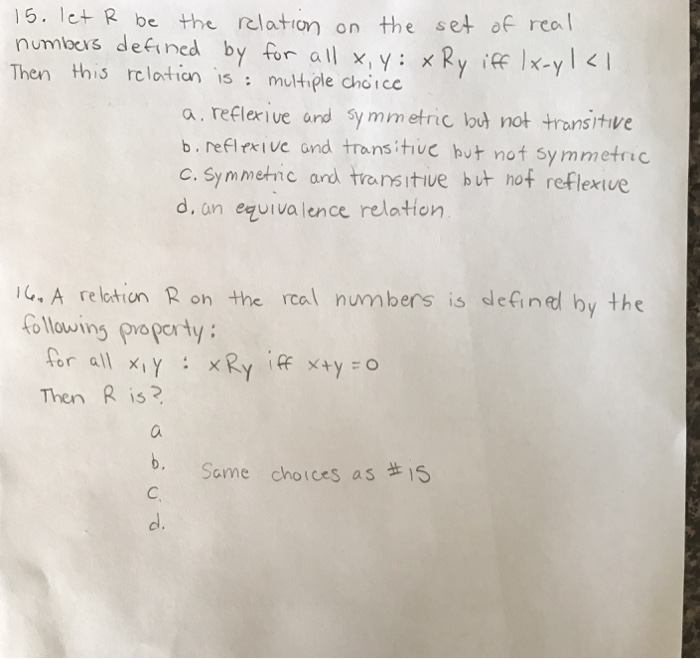 15. let R be the relation on the set of real
numbers defined by for all x, y : x Ry iff |x-y| < 1
Then this relation is : multiple choice
a. reflexive and symmetric but not transitive
b. reflexive and transitive but not symmetric
c. symmetric and transitive but not reflexive
d. an equivalence relation.
16. A relation R on the real numbers is defined by the
following property :
for all x, y : x Ry iff x+y = 0
Then R is?
a
b.
Same choices as #15
c.
d.